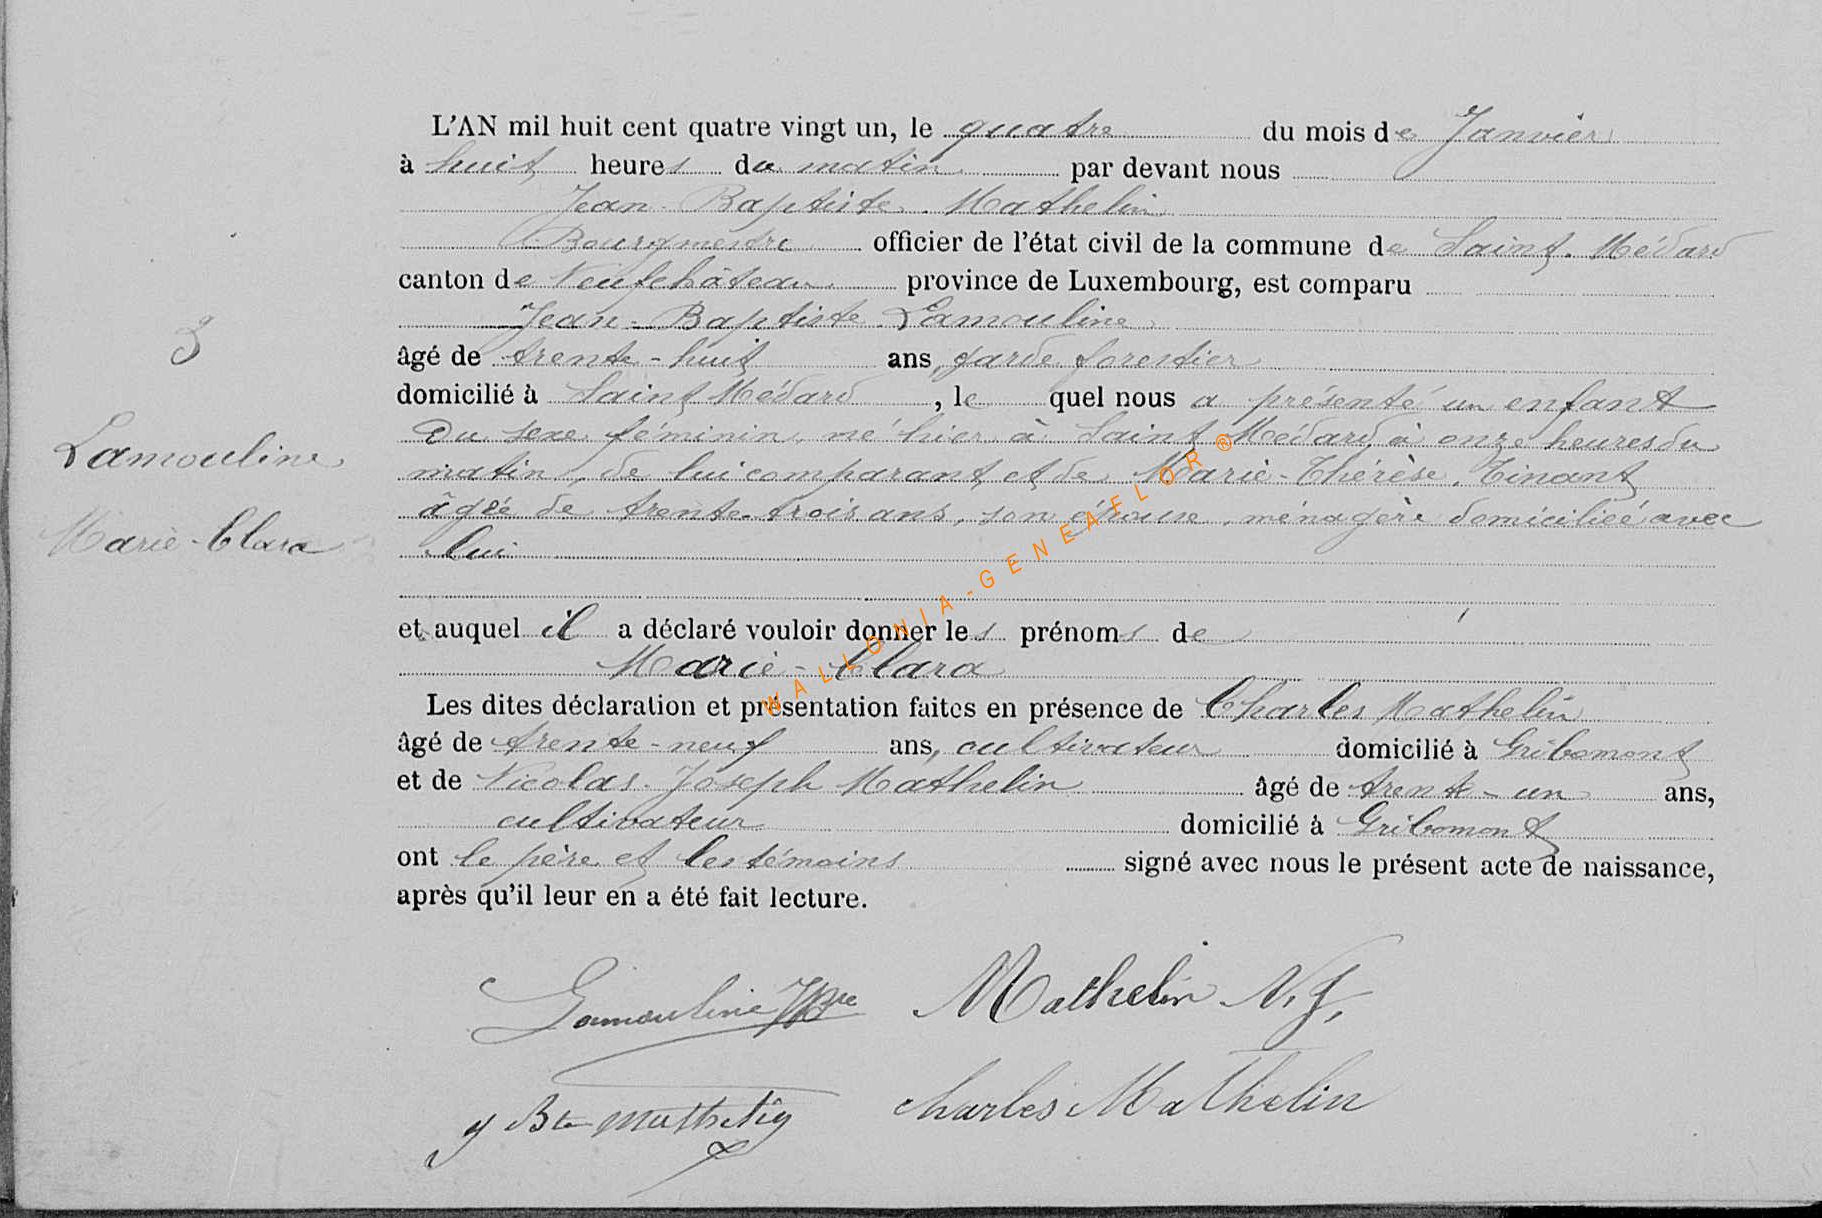 L'AN mil huit cent quatre vingt un, le quatre du mois de Janvier
à huit heures du matin par devant nous
Jean-Baptiste Mathelin
Bourgmestre officier de l'état civil de la commune de Saint-Médard
canton de Neufchâteau province de Luxembourg, est comparu
Jean-Baptiste Lamouline
âgé de trente-huit ans, garde forestier
domicilié à Saint Médard, le quel nous a présenté un enfant
du sexe féminin, né hier à Saint Médard, à onze heures du
matin, de lui comparant, et de Marie-Thérèse Tinant
âgée de trente-trois ans, son épouse, ménagère domiciliée avec
lui
et auquel il a déclaré vouloir donner les prénoms de
Marie-Clara
Les dites déclaration et présentation faites en présence de Charles Mathelin
âgé de trente-neuf ans, cultivateur domicilié à Gribomont
et de Nicolas Joseph Mathelin âgé de trente-un ans,
cultivateur domicilié à Gribomont
ont le père et les témoins signé avec nous le présent acte de naissance,
après qu'il leur en a été fait lecture.
3
Lamouline
Marie-Clara
Lamouline JBte Mathelin N. J.
J Bte Mathelin Charles Mathelin
WALLONIA-GENEAFLOR ®